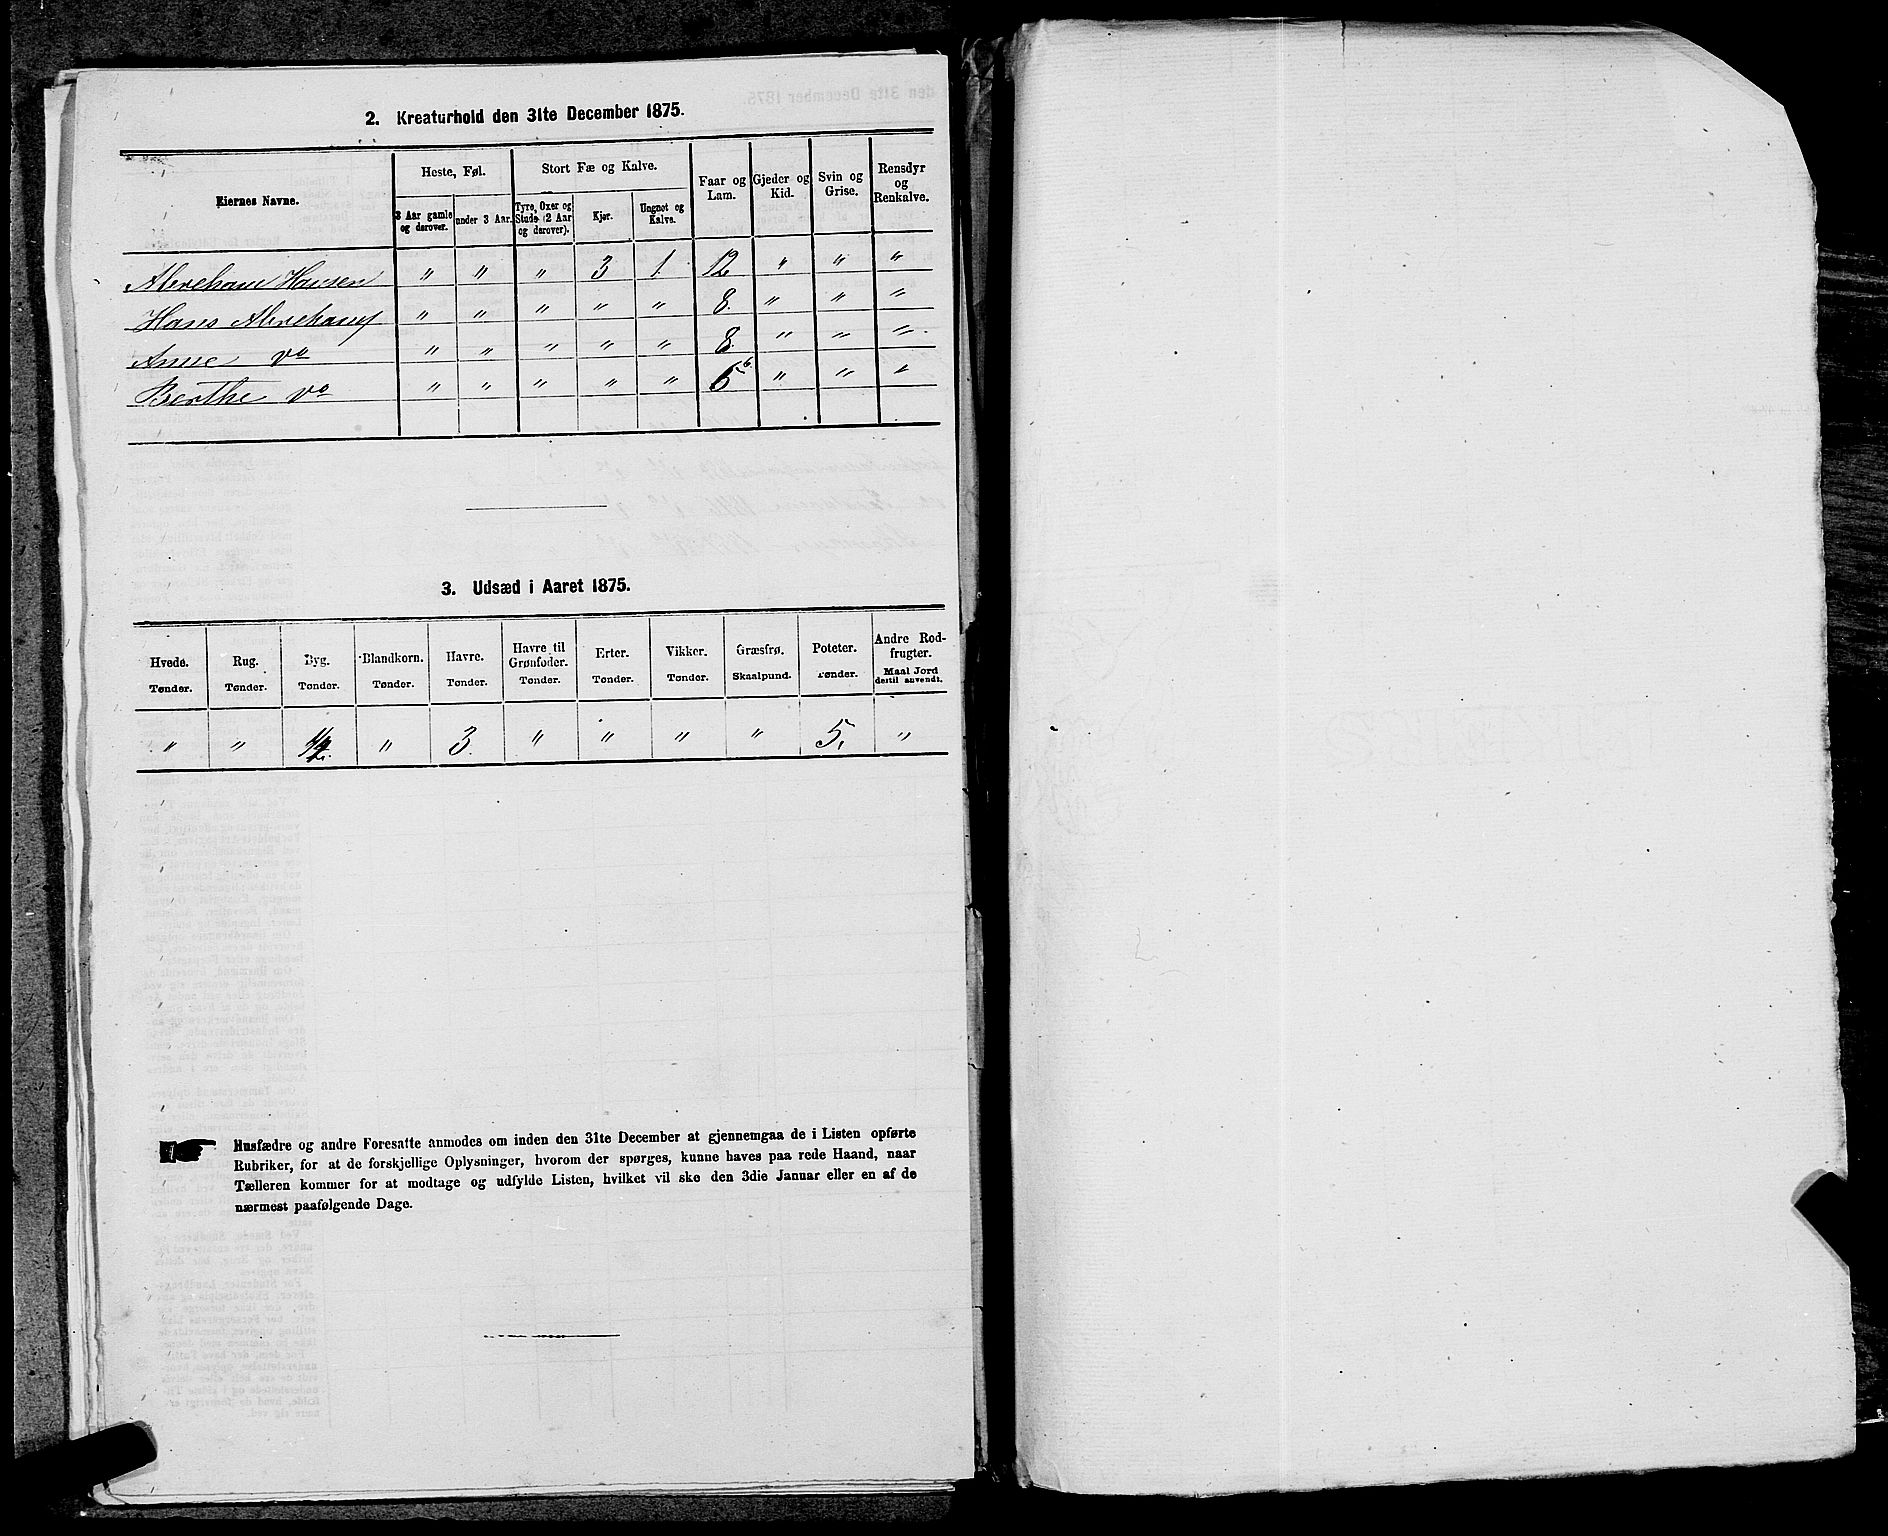 2. Kreaturhold den 31te December 1875.
Eiernes Navne.
Heste, Føl.
Stort Fæ og Kalve.
Faar og Lam.
Gjeder og Kid.
Svin og Grise.
Rensdyr og Renkalve.
3 Aar gamle og derover.
under 3 Aar.
Tyre, Oxer og Stude (2 Aar og derover).
Kjør.
Ungnøt og Kalve.
Abreham Hansen " " " 3 1. 12 " " "
Hans Abrehams " " " " " 8. " " "
Anne do " " " " " 8. " " "
Berthe do " " " " " " " "
3. Udsæd i Aaret 1875.
Hvede. Rug. Byg. Blandkorn. Havre. Havre til Grønfoder. Erter. Vikker. Græsfrø. Poteter. Andre Rodfrugter.
Tønder. Tønder. Tønder. Tønder. Tønder. Tønder. Tønder. Tønder. Skaalpund. Tønder. Maal Jord dertil anvendt.
" " 1/2. " 3. " " " " 5. "
Husfædre og andre Foresatte anmodes om inden den 31te December at gjennemgaa de i Listen opførte
Rubriker, for at de forskjellige Oplysninger, hvorom der spørges, kunne haves paa rede Haand, naar
Tælleren kommer for at modtage og udfylde Listen, hvilket vil ske den 3die Januar eller en af de
nærmest paafølgende Dage.